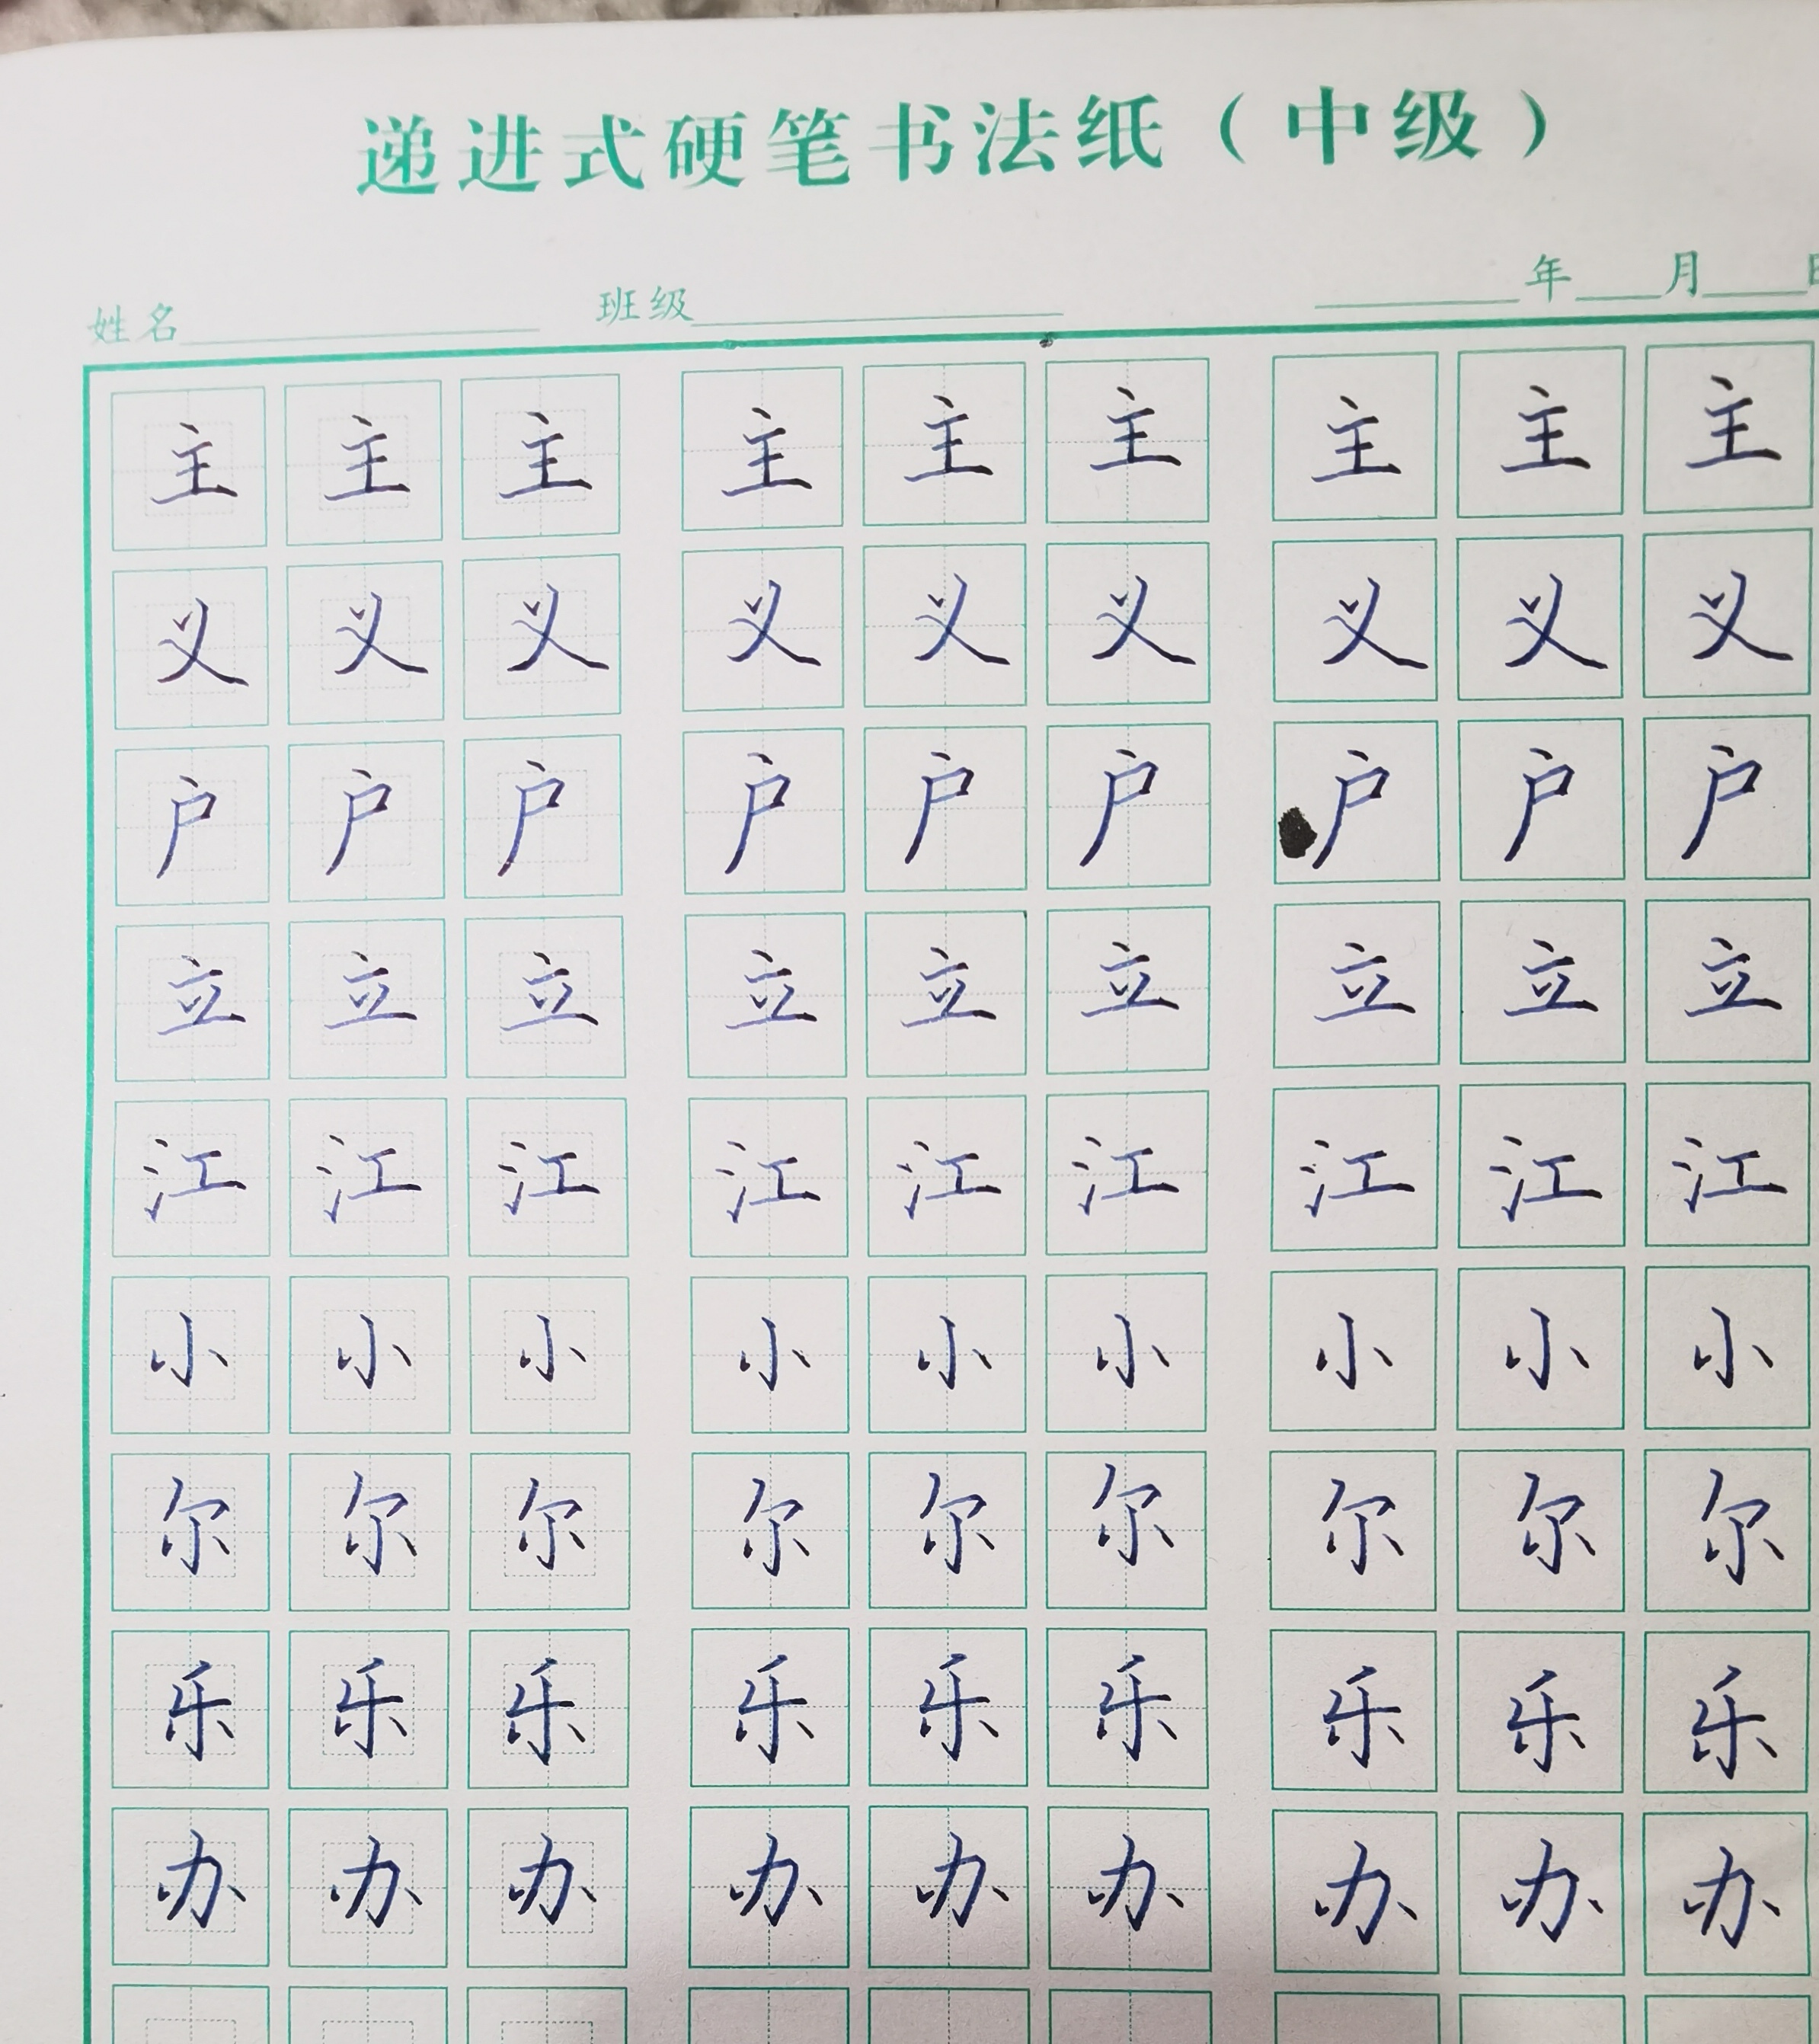 递进式硬笔书法纸（中级）
姓名 班级 年 月 日
主 主 主 主 主 主 主 主 主
义 义 义 义 义 义 义 义 义
户 户 户 户 户 户 户 户 户
立 立 立 立 立 立 立 立 立
江 江 江 江 江 江 江 江 江
小 小 小 小 小 小 小 小 小
尔 尔 尔 尔 尔 尔 尔 尔 尔
乐 乐 乐 乐 乐 乐 乐 乐 乐
办 办 办 办 办 办 办 办 办